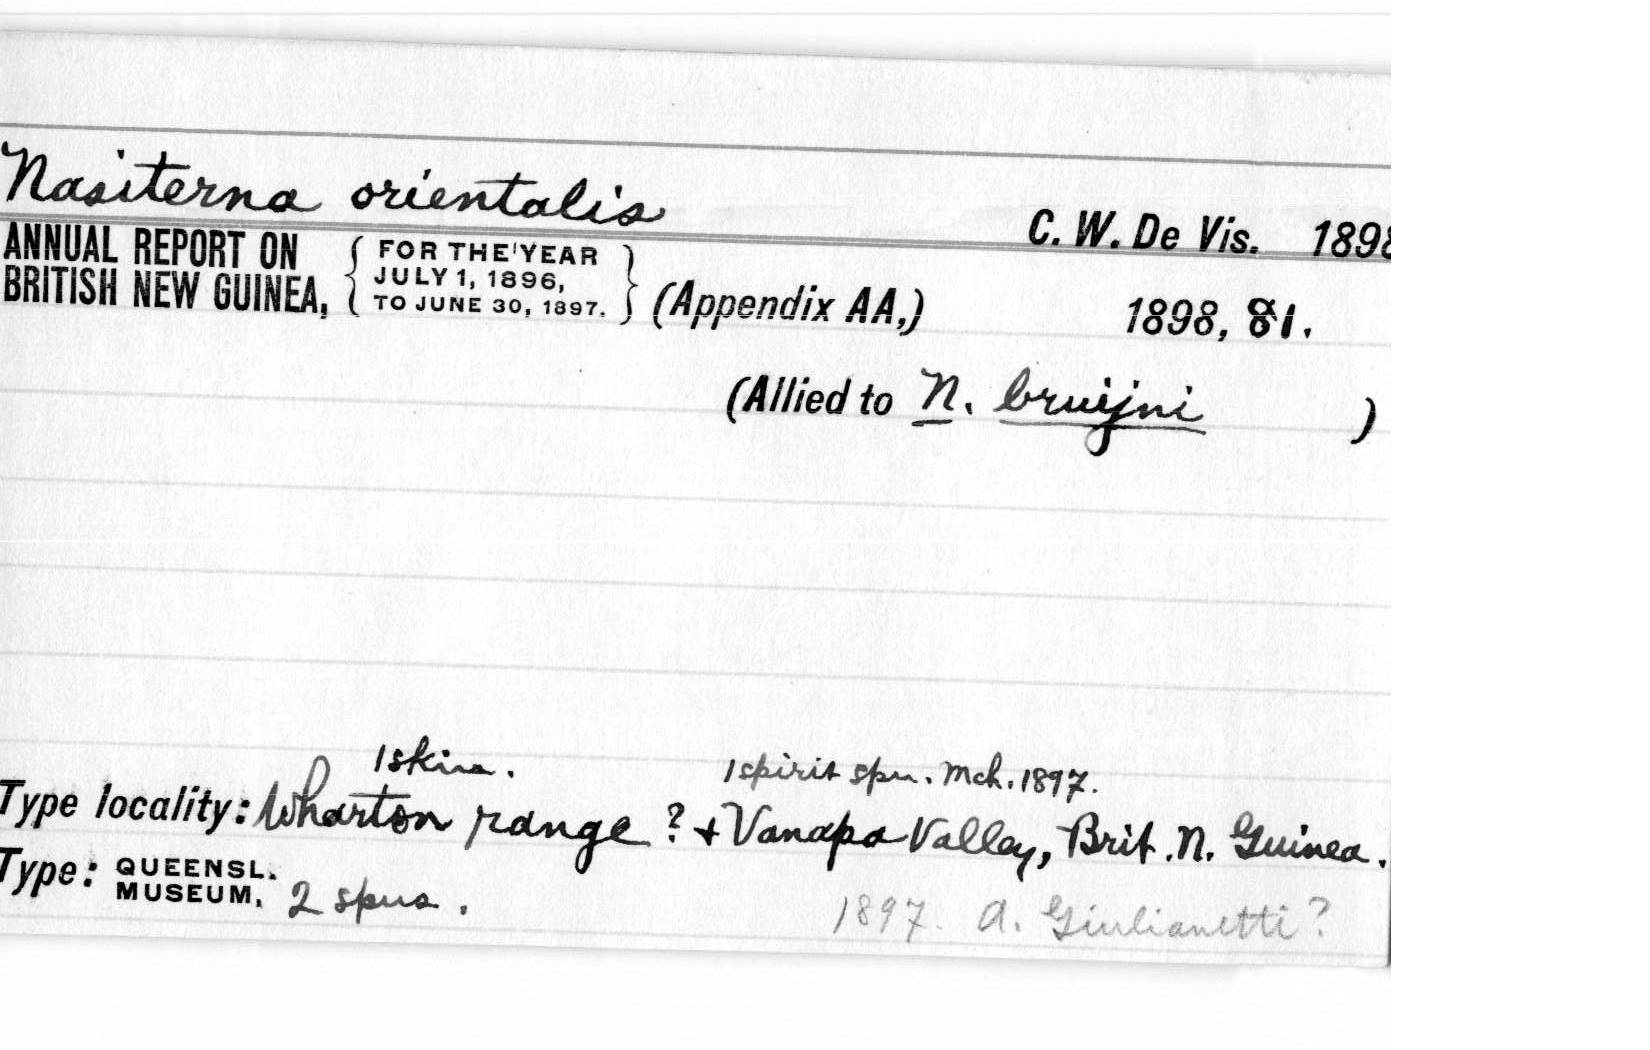 Nasiterna orientalis
C. W. De Vis. 1898
ANNUAL REPORT ON BRITISH NEW GUINEA, { FOR THE YEAR JULY 1, 1896, TO JUNE 30, 1897. } (Appendix AA,) 1898, 81.
(Allied to N. bruijni )
1 skin. 1 spirit spn. Mch. 1897.
Type locality: Wharton range ? + Vanapa Valley, Brit. N. Guinea.
Type: QUEENSL. MUSEUM, 2 spns.
1897. A. Giulianetti?